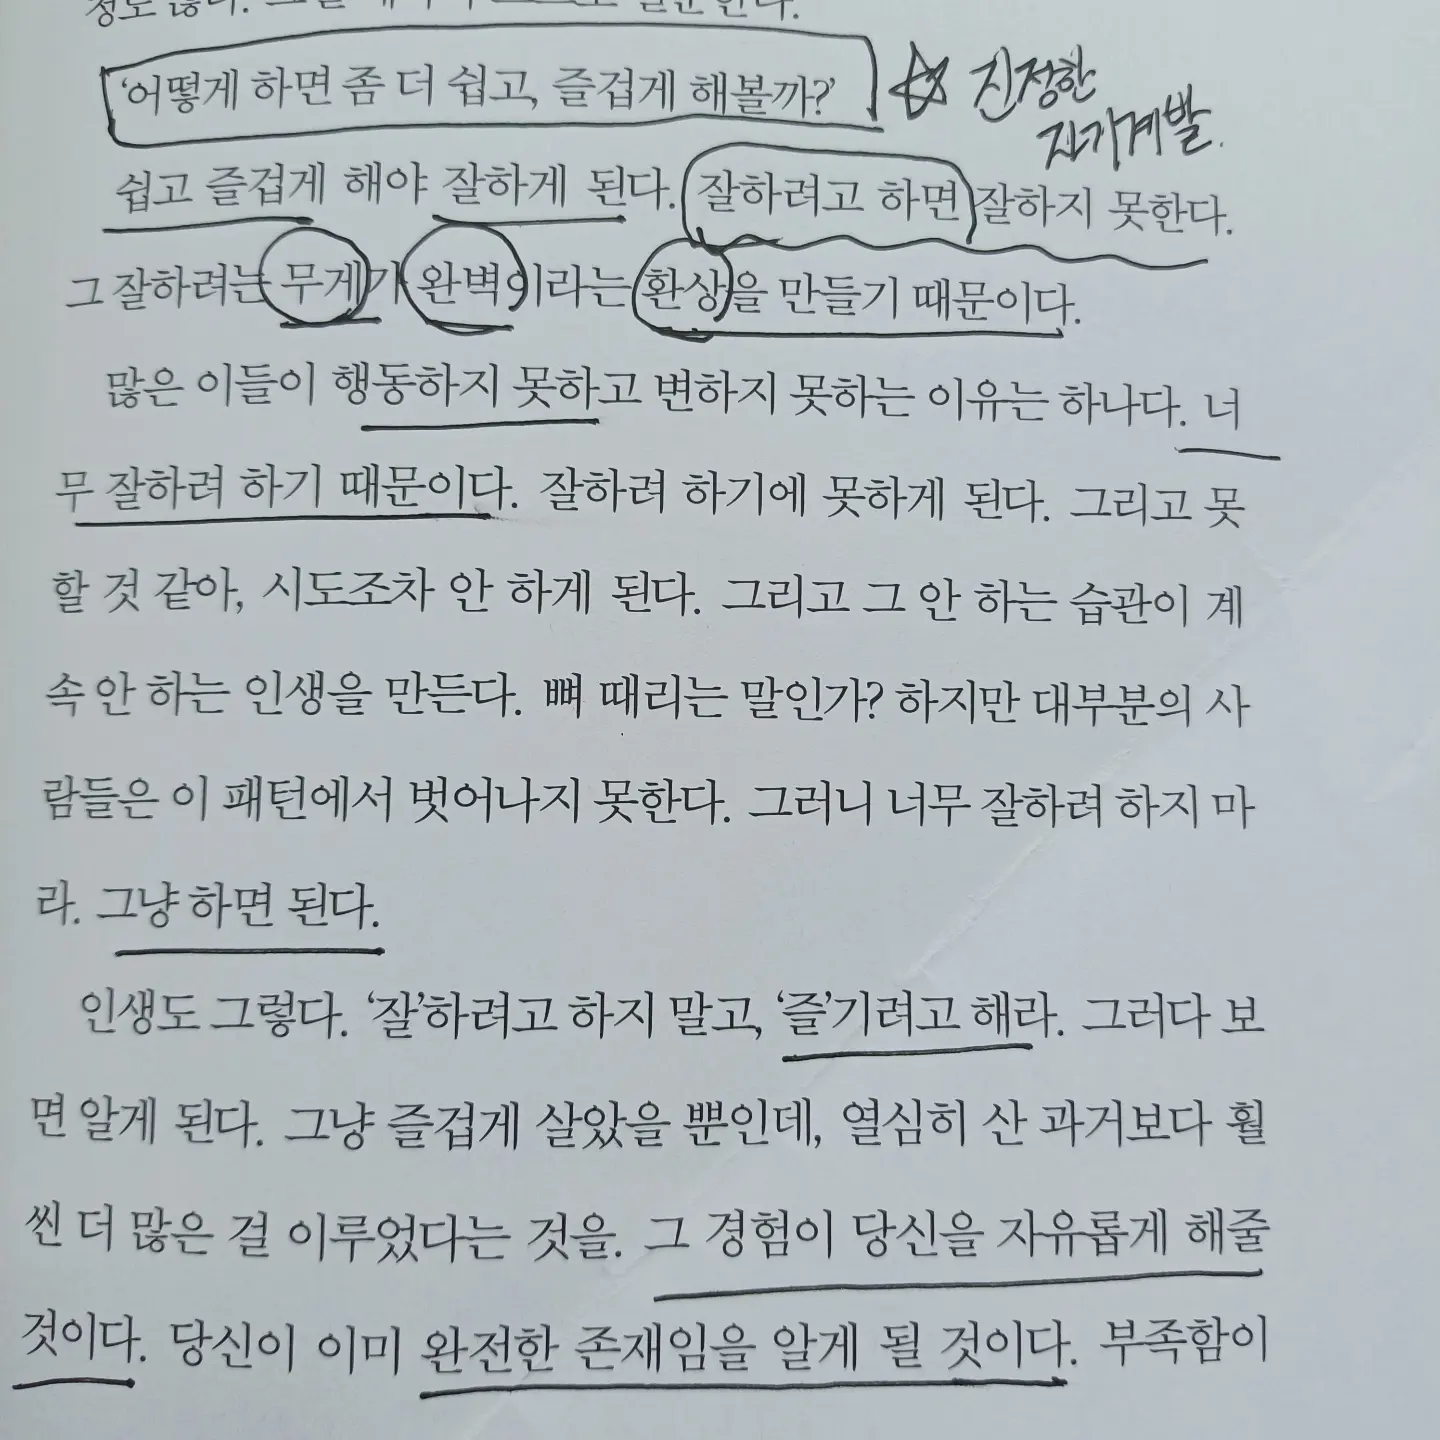 정도 많다.
'어떻게 하면 좀 더 쉽고, 즐겁게 해볼까?'
☆ 진정한
자기계발.
쉽고 즐겁게 해야 잘하게 된다. 잘하려고 하면 잘하지 못한다.
그 잘하려는 무게가 완벽이라는 환상을 만들기 때문이다.
많은 이들이 행동하지 못하고 변하지 못하는 이유는 하나다. 너
무 잘하려 하기 때문이다. 잘하려 하기에 못하게 된다. 그리고 못
할 것 같아, 시도조차 안 하게 된다. 그리고 그 안 하는 습관이 계
속 안 하는 인생을 만든다. 뼈 때리는 말인가? 하지만 대부분의 사
람들은 이 패턴에서 벗어나지 못한다. 그러니 너무 잘하려 하지 마
라. 그냥 하면 된다.
인생도 그렇다. '잘'하려고 하지 말고, '즐'기려고 해라. 그러다 보
면 알게 된다. 그냥 즐겁게 살았을 뿐인데, 열심히 산 과거보다 훨
씬 더 많은 걸 이루었다는 것을. 그 경험이 당신을 자유롭게 해줄
것이다. 당신이 이미 완전한 존재임을 알게 될 것이다. 부족함이